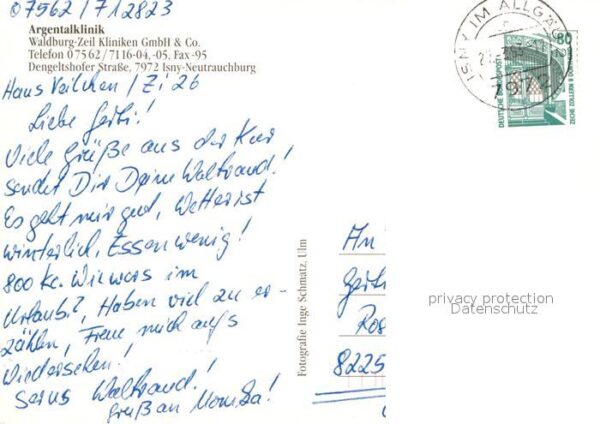 07562/712823
Argentalklinik
Waldburg-Zeil Kliniken GmbH & Co.
Telefon 07562/7116-04, -05, Fax -95
Dengeltshofer Straße, 7972 Isny-Neutrauchburg
Haus Veilchen / Zi 26
Liebe Gerti!
Viele Grüße aus der Kur
sendet Dir Deine Waltraud!
Es geht mir gut, Wetter ist
winterlich, Essen wenig!
800 Kc. Wie wars im
Urlaub?, Haben viel zu er-
zählen, Freue mich aufs
Wiedersehen!
Servus Waltraud!
Gruß an Monika!
Fotografie Inge Schmatz, Ulm
ISNY IM ALLGÄU
7972
80
DEUTSCHE BUNDESPOST
ZECHE ZOLLERN II DORTMUND
An
Gerti
Ros
8225
privacy protection
Datenschutz